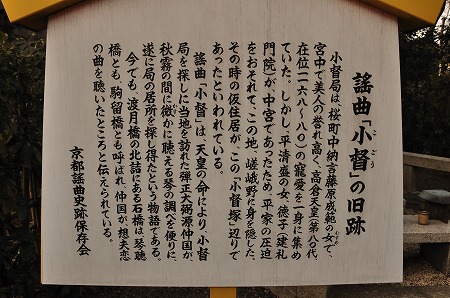 謡曲「小督」の旧跡
こごう
小督局は、桜町中納言藤原成範の女で、
むすめ
宮中で美人の誉れ高く、高倉天皇(第八〇代、
在位一一六八〜八〇)の寵愛を一身に集め
ていた。しかし、平清盛の女、徳子(建礼
門院)が、中宮であったため、平家の圧迫
をおそれて、この地、嵯峨野に身を隠した。
その時の仮住居が、この「小督塚」辺りで
あったといわれている。
謡曲「小督」は、天皇の命により、小督
局を探しに当地を訪れた弾正大弼源仲国が、
秋霧の間に微かに聴える琴の調べを便りに、
遂に局の居所を探し得たという物語である。
今でも、渡月橋の北詰にある石橋は、琴聴
橋とも、駒留橋とも呼ばれ、仲国が、想夫恋
の曲を聴いたところと伝えられている。
京都謡曲史跡保存会